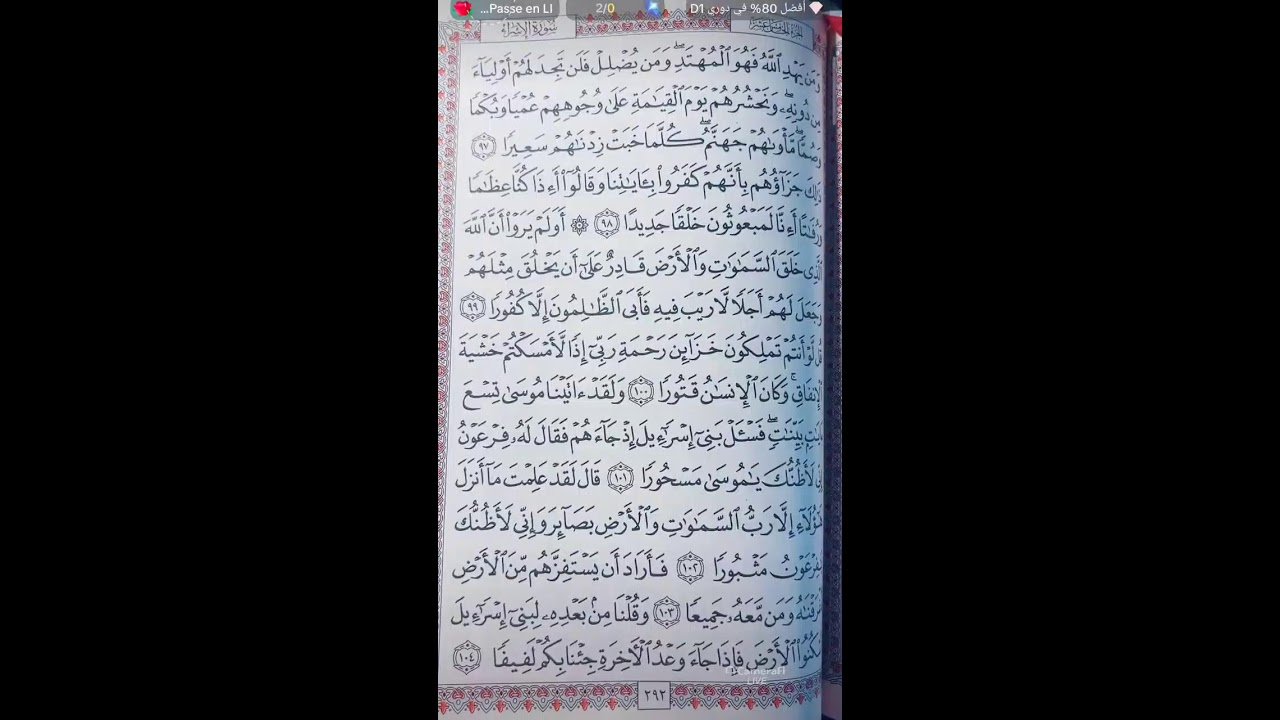 Passe en LI... 2/0 أفضل 80% في دوري D1
سورة الإسراء الجزء الخامس عشر
وَمَن يَهْدِ ٱللَّهُ فَهُوَ ٱلْمُهْتَدِۖ وَمَن يُضْلِلْ فَلَن تَجِدَ لَهُمْ أَوْلِيَآءَ
مِن دُونِهِۦۖ وَنَحْشُرُهُمْ يَوْمَ ٱلْقِيَٰمَةِ عَلَىٰ وُجُوهِهِمْ عُمْيًا وَبُكْمًا
وَصُمًّاۖ مَّأْوَىٰهُمْ جَهَنَّمُۖ كُلَّمَا خَبَتْ زِدْنَٰهُمْ سَعِيرًا ٩٧
ذَٰلِكَ جَزَآؤُهُم بِأَنَّهُمْ كَفَرُوا۟ بِـَٔايَٰتِنَا وَقَالُوٓا۟ أَءِذَا كُنَّا عِظَٰمًا
وَرُفَٰتًا أَءِنَّا لَمَبْعُوثُونَ خَلْقًا جَدِيدًا ٩٨ ۞ أَوَلَمْ يَرَوْا۟ أَنَّ ٱللَّهَ
ٱلَّذِى خَلَقَ ٱلسَّمَٰوَٰتِ وَٱلْأَرْضَ قَادِرٌ عَلَىٰٓ أَن يَخْلُقَ مِثْلَهُمْ
وَجَعَلَ لَهُمْ أَجَلًا لَّا رَيْبَ فِيهِ فَأَبَى ٱلظَّٰلِمُونَ إِلَّا كُفُورًا ٩٩
قُل لَّوْ أَنتُمْ تَمْلِكُونَ خَزَآئِنَ رَحْمَةِ رَبِّىٓ إِذًا لَّأَمْسَكْتُمْ خَشْيَةَ
ٱلْإِنفَاقِۚ وَكَانَ ٱلْإِنسَٰنُ قَتُورًا ١٠٠ وَلَقَدْ ءَاتَيْنَا مُوسَىٰ تِسْعَ
ءَايَٰتٍۭ بَيِّنَٰتٍۖ فَسْـَٔلْ بَنِىٓ إِسْرَٰٓءِيلَ إِذْ جَآءَهُمْ فَقَالَ لَهُۥ فِرْعَوْنُ
إِنِّى لَأَظُنُّكَ يَٰمُوسَىٰ مَسْحُورًا ١٠١ قَالَ لَقَدْ عَلِمْتَ مَآ أَنزَلَ
هَٰٓؤُلَآءِ إِلَّا رَبُّ ٱلسَّمَٰوَٰتِ وَٱلْأَرْضِ بَصَآئِرَ وَإِنِّى لَأَظُنُّكَ
يَٰفِرْعَوْنُ مَثْبُورًا ١٠٢ فَأَرَادَ أَن يَسْتَفِزَّهُم مِّنَ ٱلْأَرْضِ
فَأَغْرَقْنَٰهُ وَمَن مَّعَهُۥ جَمِيعًا ١٠٣ وَقُلْنَا مِنۢ بَعْدِهِۦ لِبَنِىٓ إِسْرَٰٓءِيلَ
ٱسْكُنُوا۟ ٱلْأَرْضَ فَإِذَا جَآءَ وَعْدُ ٱلْـَٔاخِرَةِ جِئْنَا بِكُمْ لَفِيفًا ١٠٤
CameraFi
LIVE
٢٩٢